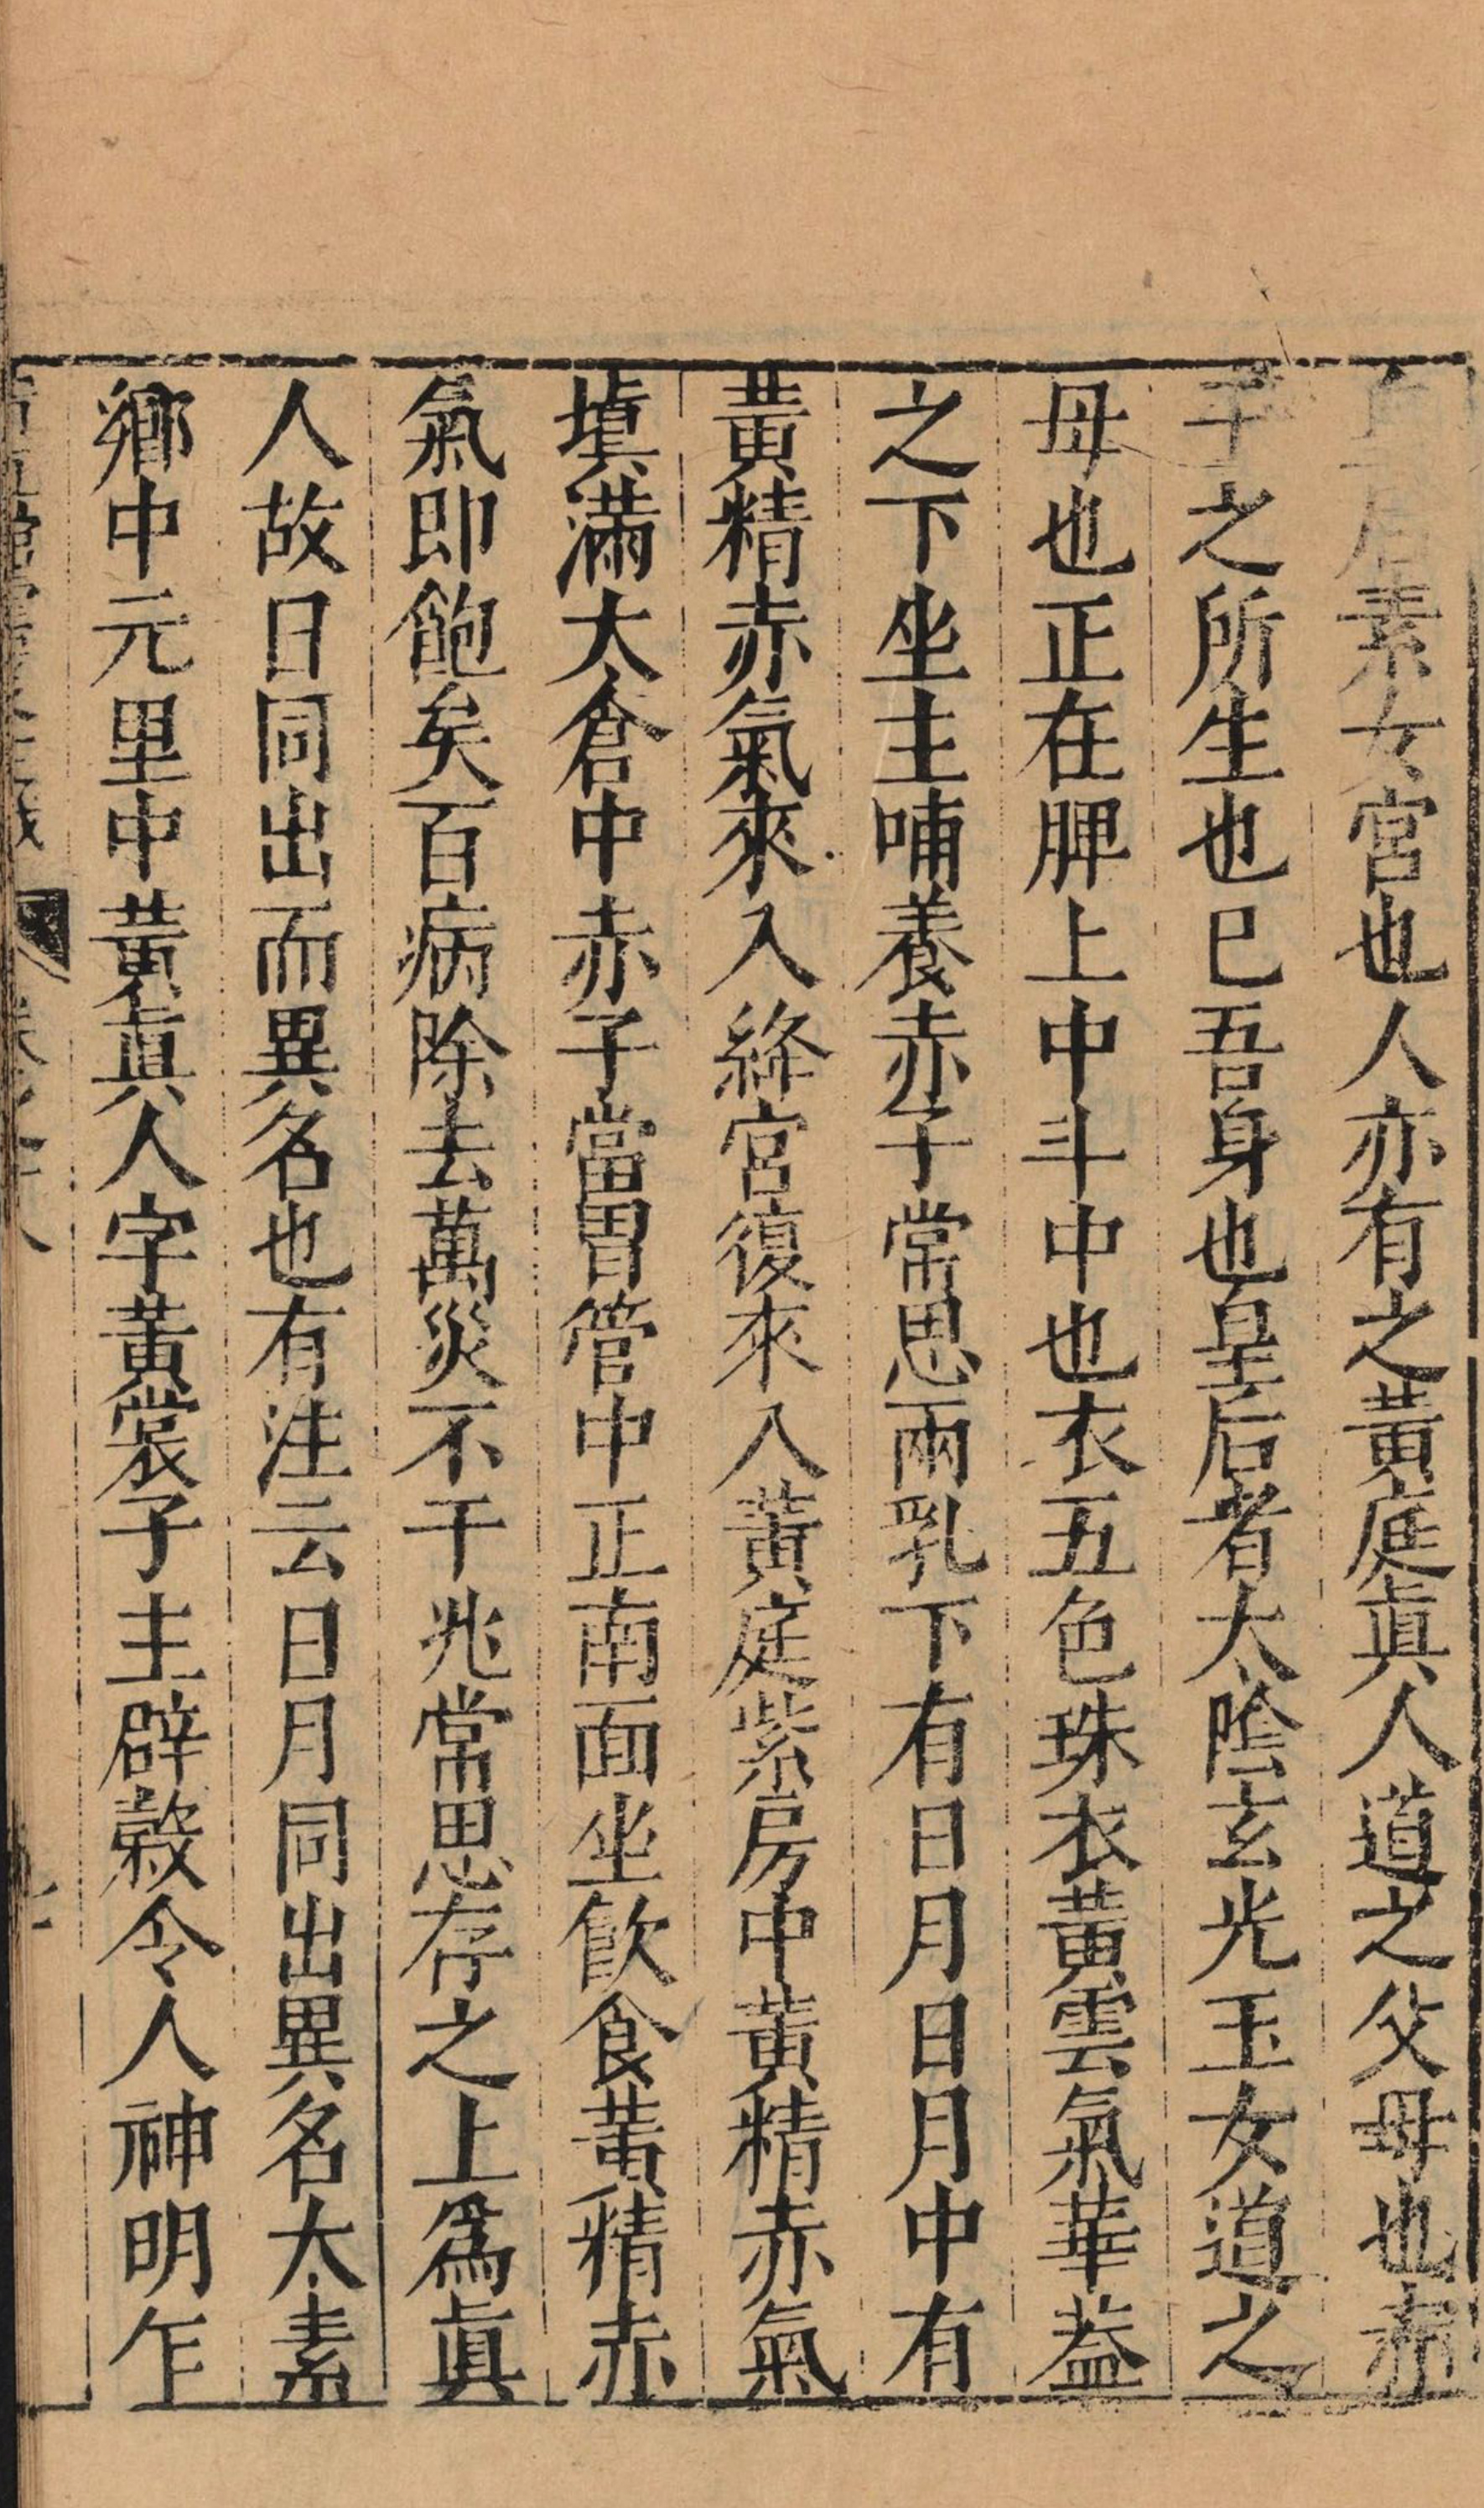 素女宮也人亦有之黃庭眞人道之父母也赤
子之所生也巳吾身也皇后者太陰玄光玉女道之
母也正在脾上中斗中也衣五色珠衣黃雲氣華葢
之下坐主哺養赤子常思兩乳下有日月日月中有
黃精赤氣來入絳宮復來入黃庭紫房中黃精赤氣
塡滿太倉中赤子當胃管中正南面坐飮食黃精赤
氣即飽矣百病除去萬災不干兆常思存之上爲眞
人故曰同出而異名也有注云日月同出異名太素
鄉中元里中黃眞人字黃裳子主辟穀令人神明乍